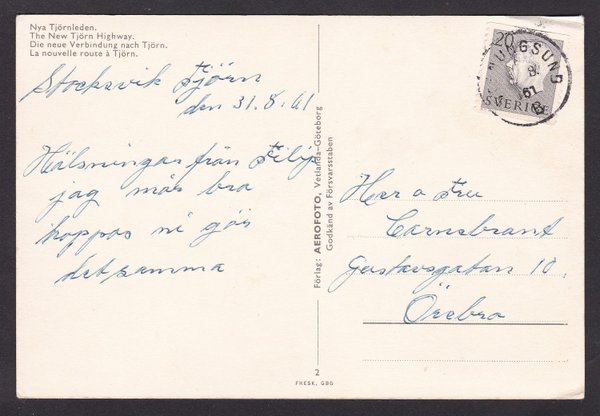 Nya Tjörnleden.
The New Tjörn Highway.
Die neue Verbindung nach Tjörn.
La nouvelle route à Tjörn.
Stocksvik Tjörn
den 31.8.61
Hälsningar från Filip
jag mår bra
hoppas ni gör
det samma
Förlag: AEROFOTO, Vetlanda-Göteborg
Godkänd av Försvarsstaben
20
SVERIGE
61
Herr o Fru
Carnsbrant
Gustavsgatan 10.
Örebro
2
FRESK, GBG